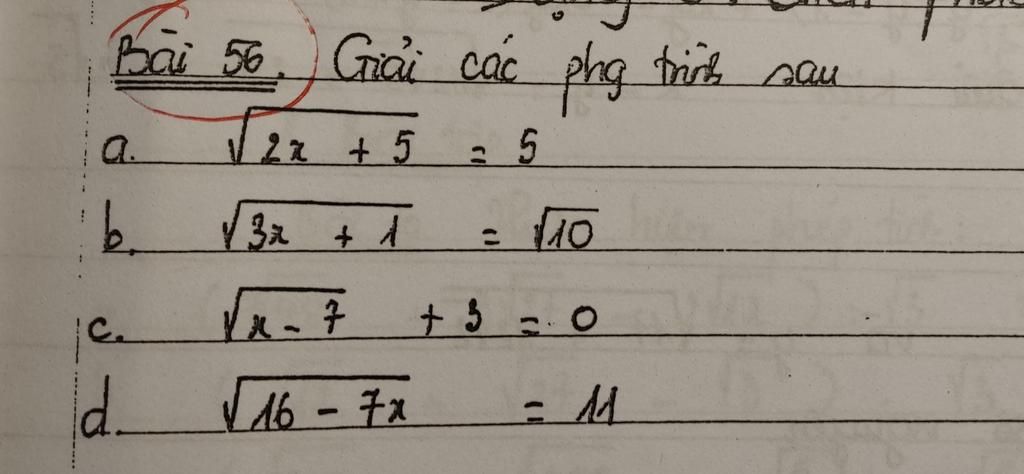 Bài 56. Giải các phg trình sau
a. √2x + 5 = 5
b. √3x + 1 = √10
c. √x - 7 + 3 = 0
d. √16 - 7x = 11